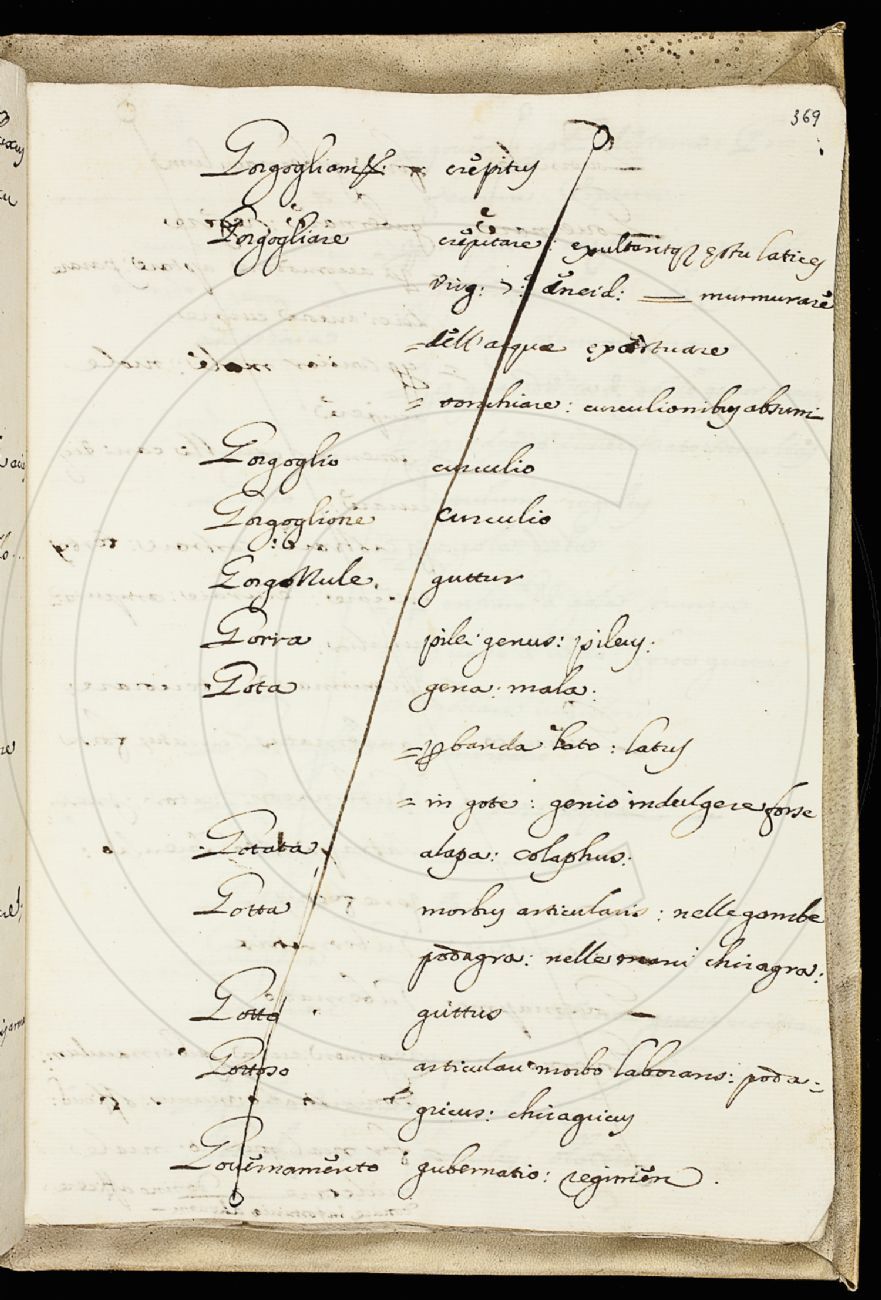 369
Gorgogliam͞t: crepitus
Gorgogliare crepitare: exultantq; estu latices
Virg: 7: Aeneid: — murmurare
= dell'acquae exaestuare
= tonchiare: curculionibus absumi
Gorgoglio curculio
Gorgoglione curculio
Gorgozzule guttur
Gorra pilei genus: pileus:
Gota gena: mala:
= p banda lato: latus
= in gote: genio indulgere forse
Gotata alapa: colaphus:
Gotta morbus articularis: nelle gambe
podagra: nelle mani chiragra:
Gotto guttus —
Gottoso articulari morbo laborans: poda=
gricus: chiragricus
Governamento gubernatio: regimen.